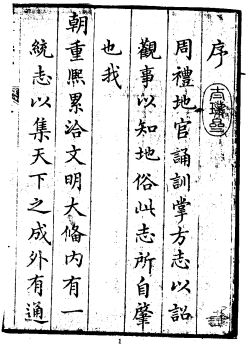 序
周禮地官誦訓掌方志以詔
觀事以知地俗此志所自肇
也我
朝重熙累洽文明大備內有一
統志以集天下之成外有通
1